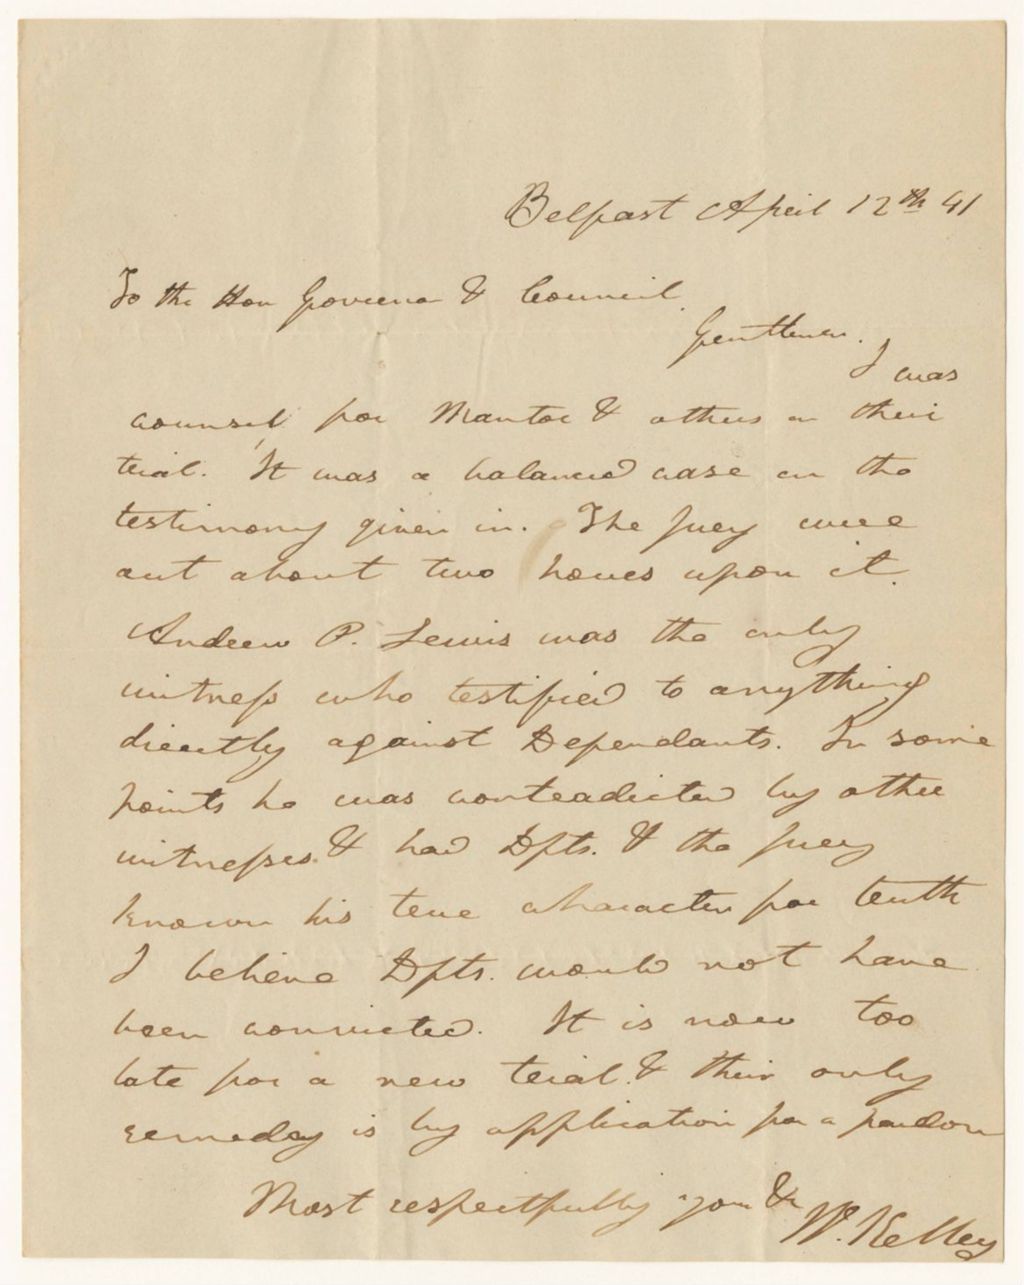 Belfast April 12th 41
To the Hon Governor & Council
Gentlemen.
I was
counsel for Mantor & others on their
trial. It was a balanced case on the
testimony given in. The Jury were
out about two houres upon it.
Andrew P. Lewis was the only
witness who testified to anything
directly against Defendants. In some
points he was contradicted by other
witnesses & had Dfts. & the jury
known his true character for truth
I believe Dfts. would not have
been convicted. It is now too
late for a new trial & their only
remeday is by application for a pardon
Most respectfully your &c
W. Kelley